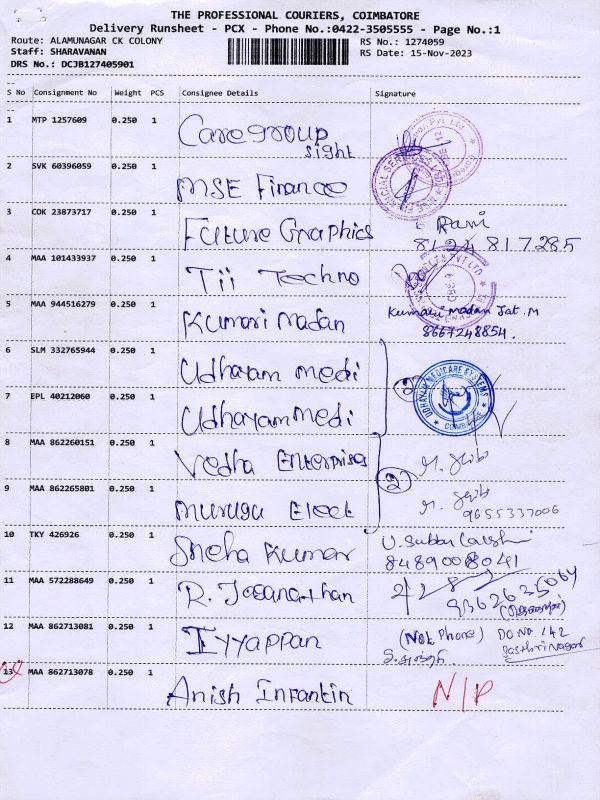 THE PROFESSIONAL COURIERS, COIMBATORE
Delivery Runsheet - PCX - Phone No.:0422-3505555 - Page No.:1
Route: ALAMUNAGAR CK COLONY RS No.: 1274059
Staff: SHARAVANAN RS Date: 15-Nov-2023
DRS No.: DCJB127405901
S No Consignment No Weight PCS Consignee Details Signature
1 MTP 1257609 0.250 1 Caregroup
sight
2 SVK 60396059 0.250 1 MSE Finance
3 COK 23873717 0.250 1 Future Graphics Rani
8124 817285
4 MAA 101433937 0.250 1 Tii Techno
5 MAA 944516279 0.250 1 Kumari Madan Kumari Madan Jat. M
8667248854.
6 SLM 332765944 0.250 1 Udhayam medi
2 UDHAYAM MEDICARE SYSTEMS COIMBATORE
7 EPL 40212060 0.250 1 Udhayam medi
8 MAA 862260151 0.250 1 Vedha Enterprises
2
9 MAA 862265801 0.250 1 Murugu Elect
9655337006
10 TKY 426926 0.250 1 Sneha Kumar U. Subbulakshmi
8489008041
11 MAA 572288649 0.250 1 R. Jeganathan
9362635064
12 MAA 862713081 0.250 1 Iyyappan (Not Phone) DO NO 142
Sasthri Nagar
13 MAA 862713078 0.250 1 Anish Infantin N/P